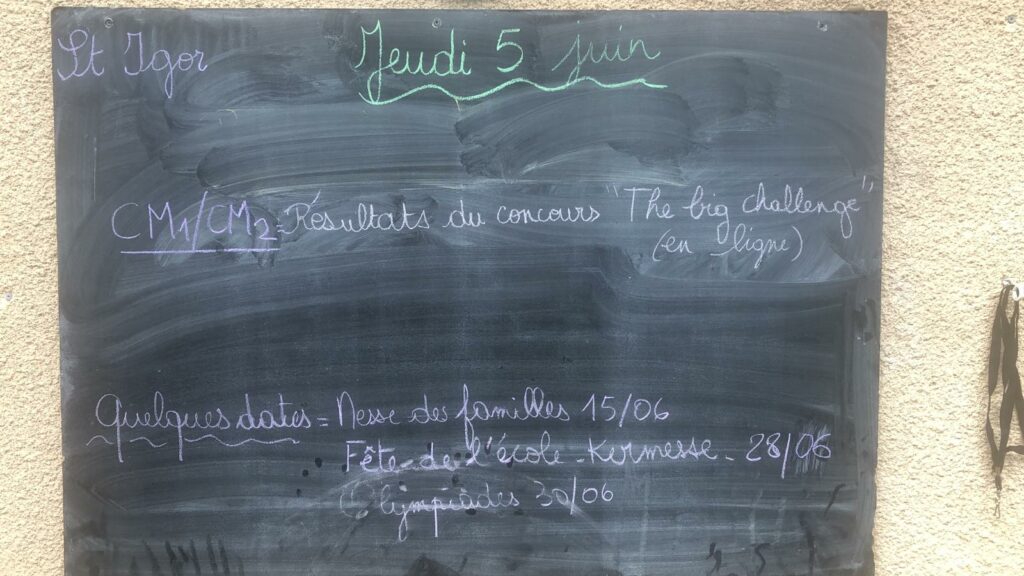 St Igor
Jeudi 5 juin
CM1/CM2 : Résultats du concours "The big challenge"
(en ligne)
Quelques dates = Messe des familles 15/06
Fête de l'école - Kermesse - 28/06
Olympiades 30/06